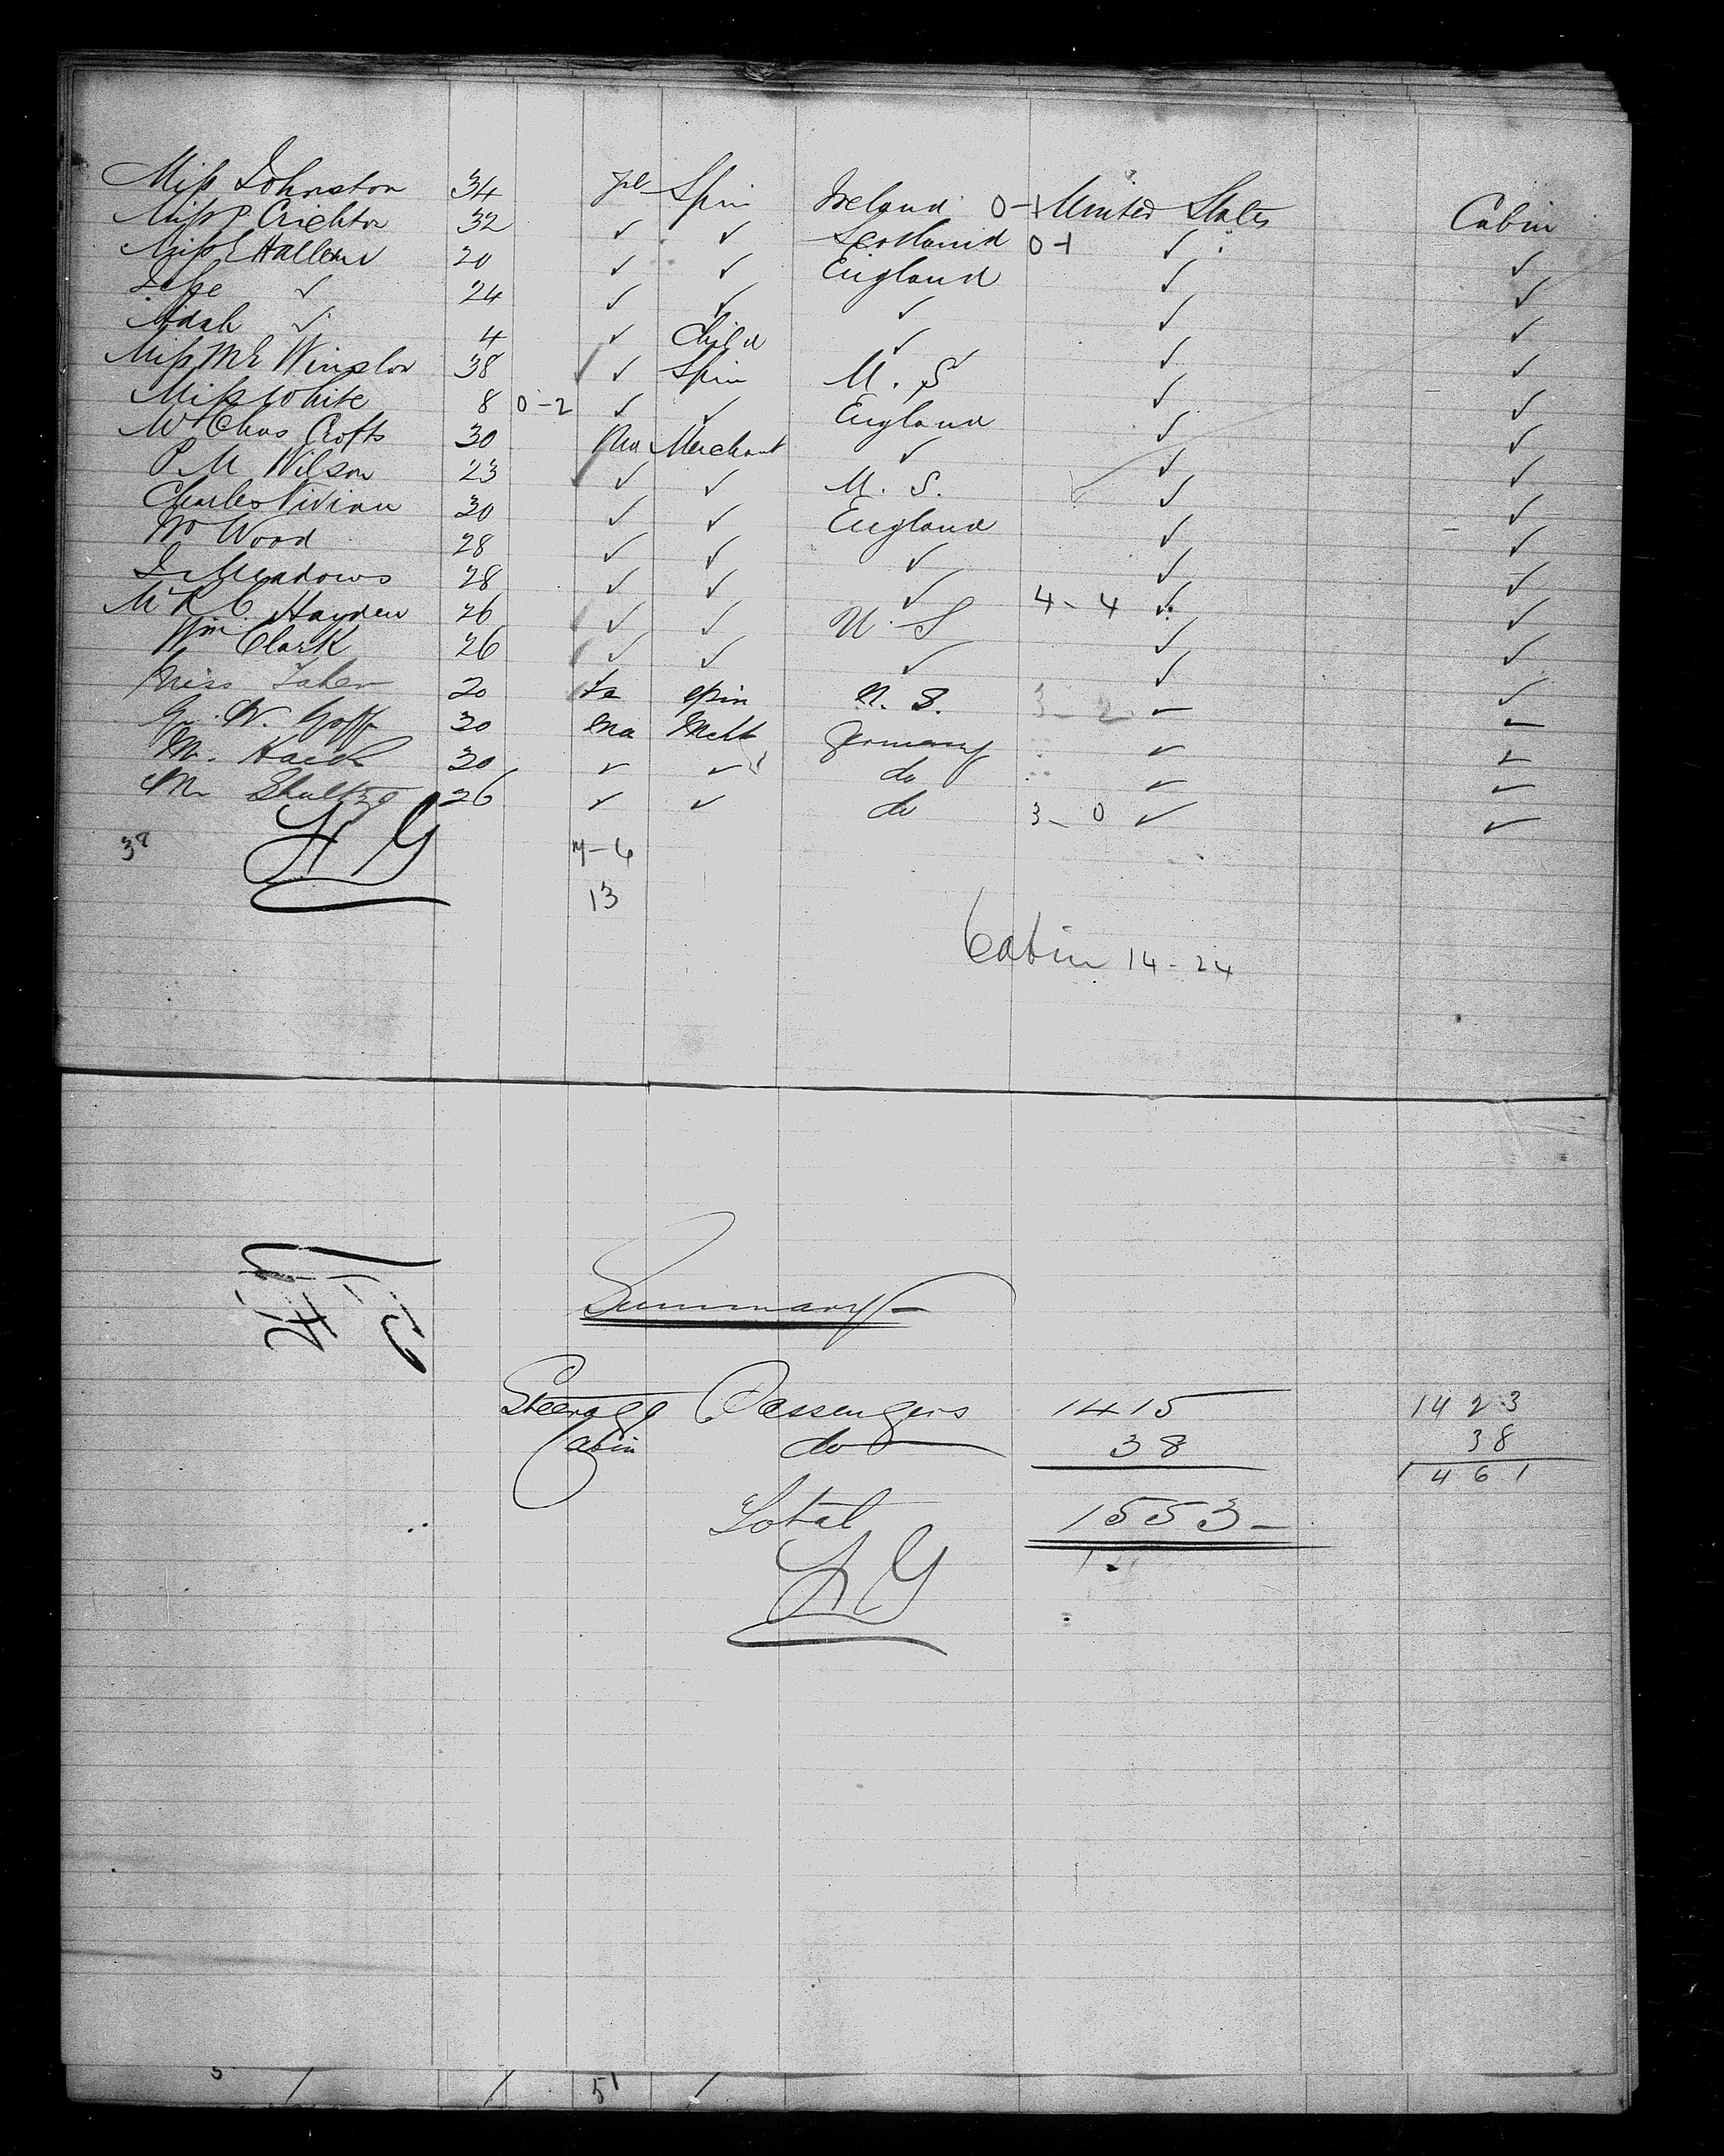 Miss Johnston 34 fe Spin Ireland 0-1 United States Cabin
Miss Crichton 32 ✓ ✓ Scotland 0-1 ✓ ✓
Miss E Hallem 20 ✓ ✓ England ✓ ✓
✓ 24 ✓ ✓ ✓ ✓ ✓
Adah ✓ 4 ✓ Child ✓ ✓ ✓
Miss Winslow 38 ✓ Spin U. S ✓ ✓
Miss White 8 0-2 ✓ ✓ England ✓ ✓
Mr Chas Crofts 30 Ma Merchant ✓ ✓ ✓
P. M Wilson 23 ✓ ✓ U. S. ✓ ✓
Charles Vivian 30 ✓ ✓ England ✓ ✓
Wm Wood 28 ✓ ✓ ✓ ✓ ✓
Meadows 28 ✓ ✓ ✓ 4-4 ✓ ✓
Mr R C Hayden 26 ✓ ✓ U. S ✓ ✓
Wm Clark 26 ✓ ✓ ✓ ✓ ✓
Miss 20 Fe Spin U. S. 3-2 ✓ ✓
W. Goff 30 Ma Germany ✓ ✓
M. 30 ✓ ✓ do ✓ ✓
Mr Shultze 26 ✓ ✓ do 3-0 ✓ ✓
38
7-6
13
Cabin 14-24
Summary
Steerage Passengers 1415 1423
Cabin do 38 38
1461
Total 1553
51